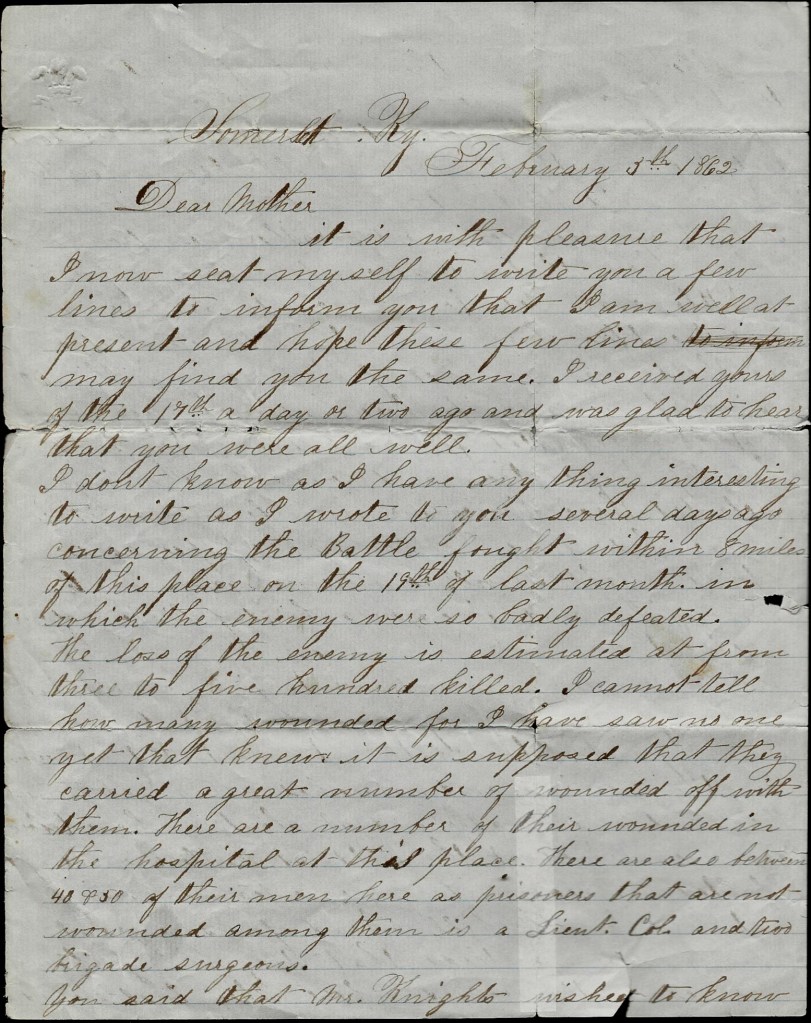 Somerset . Ky.
February 5th 1862
Dear Mother
it is with pleasure that
I now seat myself to write you a few
lines to inform you that I am well at
present and hope these few lines to inform
may find you the same. I received yours
of the 17th a day or two ago and was glad to hear
that you were all well.
I dont know as I have any thing interesting
to write as I wrote to you several days ago
concerning the Battle fought within 8 miles
of this place on the 19th of last month. in
which the enemy were so badly defeated.
The loss of the enemy is estimated at from
three to five hundred killed. I cannot tell
how many wounded for I have saw no one
yet that knew. it is supposed that they
carried a great number of wounded off with
them. There are a number of their wounded in
the hospital at this place. There are also between
40 & 50 of their men here as prisoners that are not
wounded among them is a Lieut. Col. and two
brigade surgeons.
You said that Mr. Knights wished to know